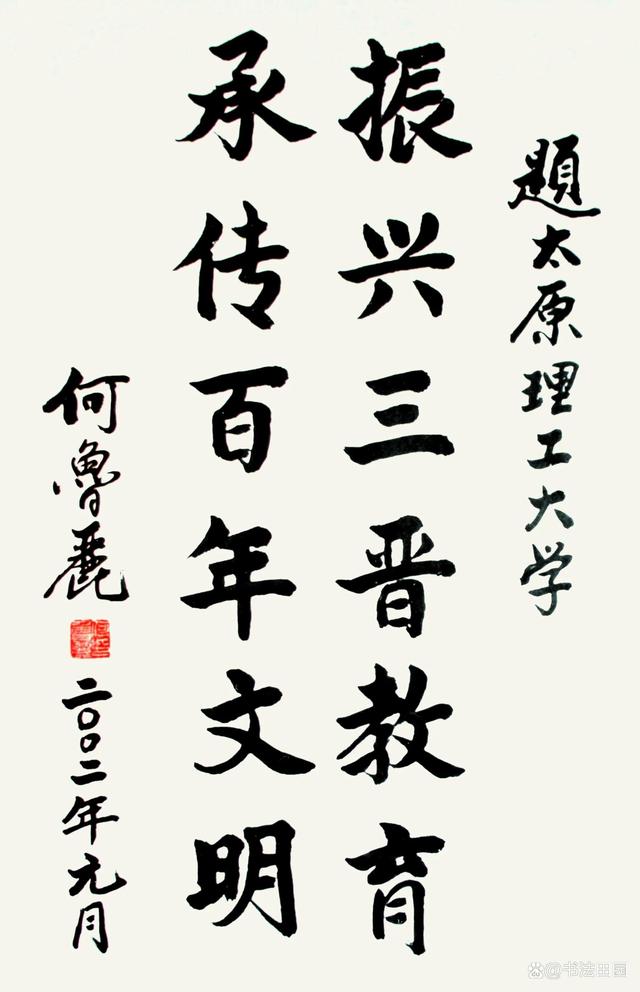 題太原理工大学
振兴三晋教育
承传百年文明
何魯麗
二〇〇二年元月
@书法田园